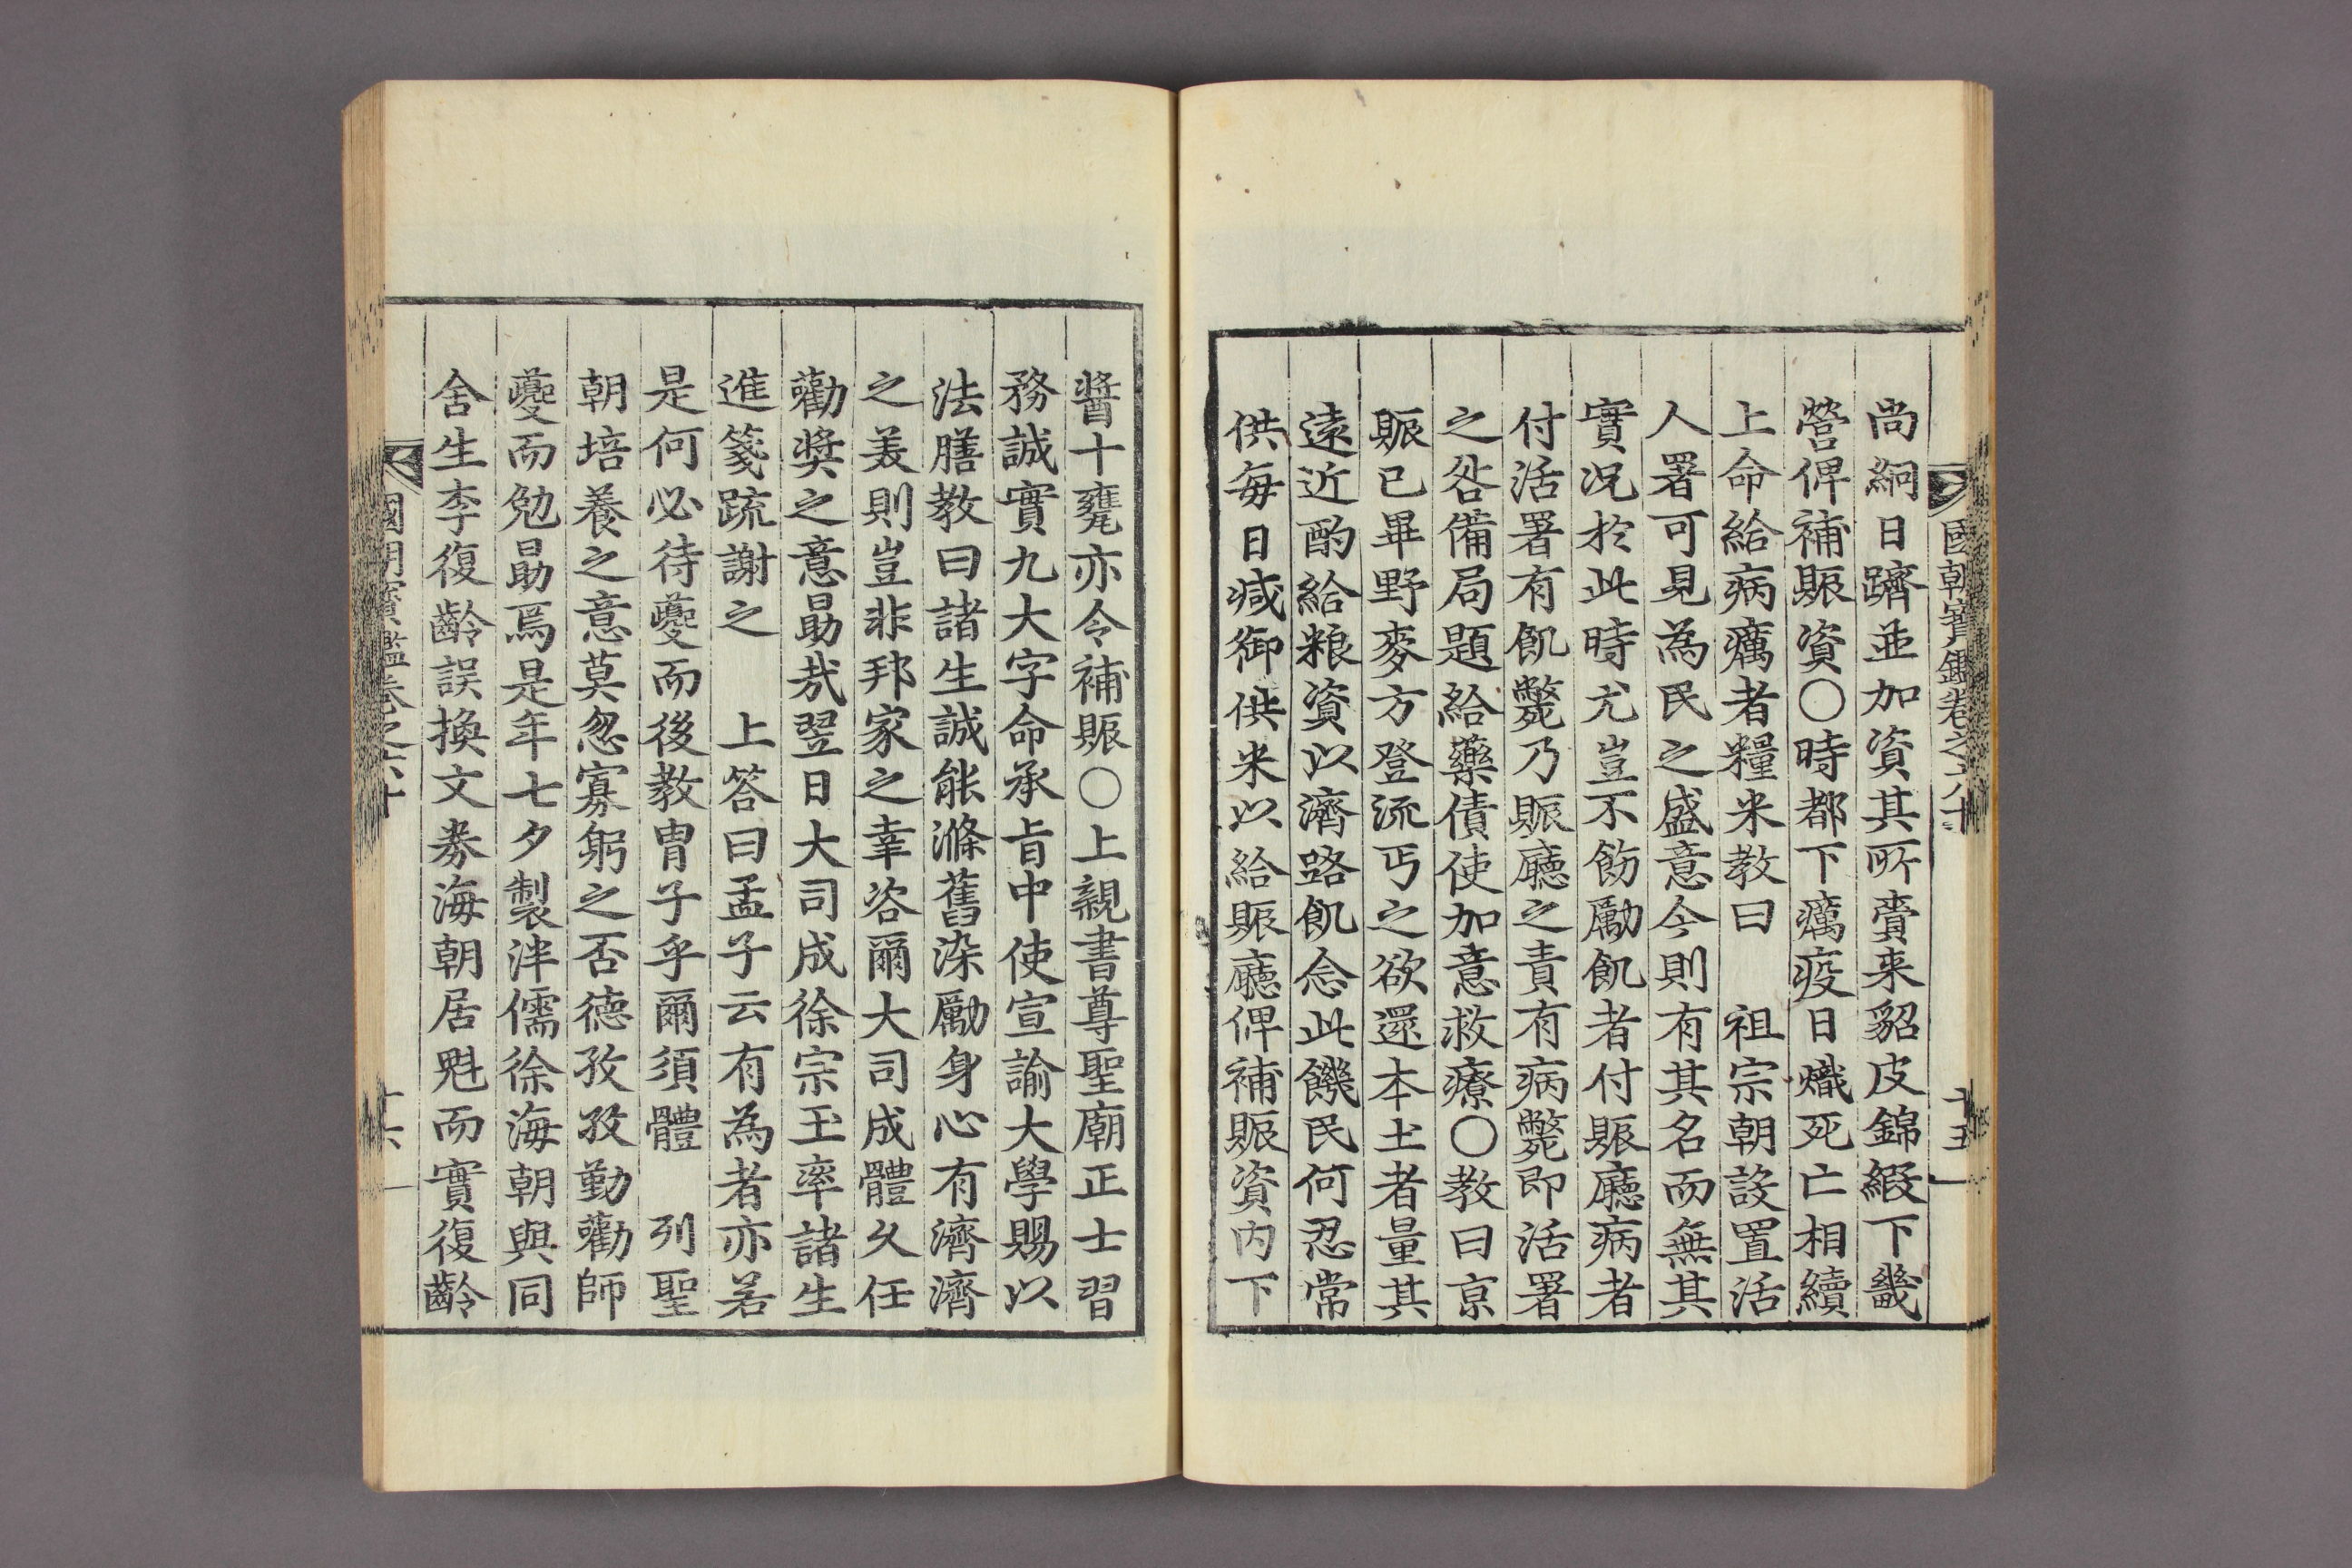 國朝寶鑑卷之六十 十五
尚絅日躋並加資其所賚来貂皮錦緞下畿
營俾補賑資○時都下癘疫日熾死亡相續
上命給病癘者糧米教曰 祖宗朝設置活
人署可見為民之盛意今則有其名而無其
實况於此時尤豈不飭勵飢者付賑廳病者
付活署有飢斃乃賑廳之責有病斃即活署
之咎備局題給藥債使加意救療○教曰京
賑已畢野麥方登流丐之欲還本土者量其
遠近酌給粮資以濟路飢念此饑民何忍常
供每日减御供米以給賑廳俾補賑資内下
醬十甕亦令補賑○上親書尊聖廟正士習
務誠實九大字命承旨中使宣諭大學賜以
法膳教曰諸生誠能滌舊染勵身心有濟濟
之美則豈非邦家之幸咨爾大司成體久任
勸奬之意勗哉翌日大司成徐宗玉率諸生
進箋䟽謝之 上答曰孟子云有為者亦若
是何必待夔而後教胄子乎爾須體 列聖
朝培養之意莫忽寡躬之否德孜孜勤勸師
夔而勉勗焉是年七夕製泮儒徐海朝與同
舍生李復齡誤換文券海朝居魁而實復齡
國朝寶鑑卷之六十 十六